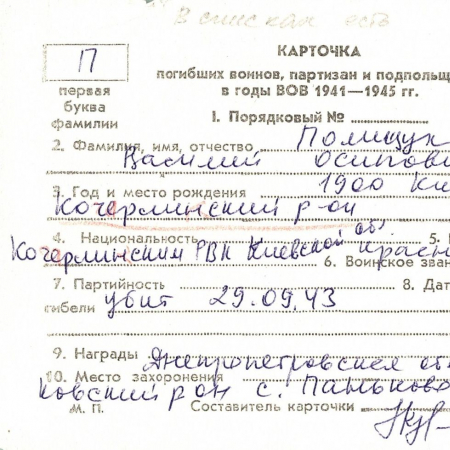 В списках есть
П
КАРТОЧКА
первая
буква
фамилии
погибших воинов, партизан и подпольщ
в годы ВОВ 1941—1945 гг.
I. Порядковый №
2. Фамилия, имя, отчество Полищук
Василий Осипови
3. Год и место рождения 1900 Ки
Кочерминский р-он
4. Национальность 5.
Кочерминским РВК Киевской об. красн
6. Воинское зван
7. Партийность 8. Дат
гибели убит 29.09.43
9. Награды
Днепропетровская об
10. Место захоронения
ковский р он с. Паньково
М. П. Составитель карточки